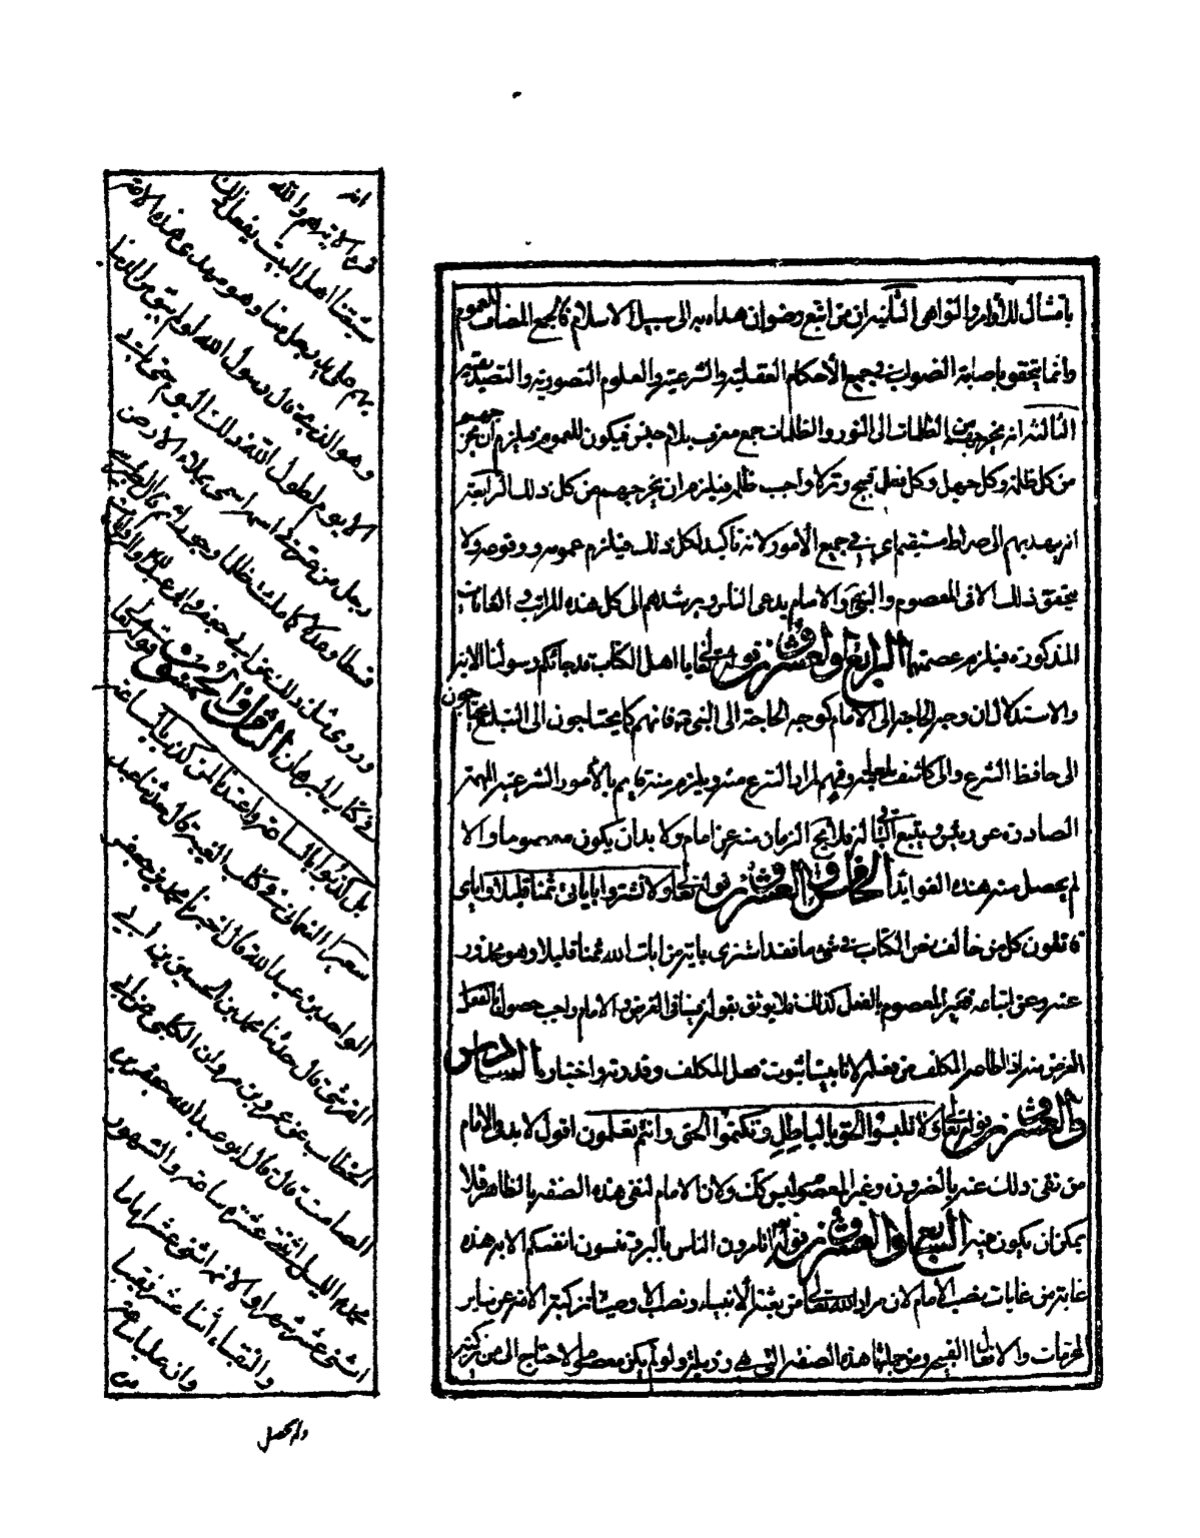 بامتثال للأوامر والنواهي الثانية انه من اتبع رضوانه هداه به الى سبيل الاسلام فالجمع المضاف للعموم
وانما يتحقق باصابة الصواب في جميع الأحكام العقلية والشرعية والعلوم التصورية والتصديقية
الثالثة انه يخرجهم من الظلمات الى النور والظلمات جمع معرف بلام جنس فيكون للعموم فيلزم أن يخرجهم
من كل ظلمة وكل جهل وكل فعل قبيح وترك واجب ظلمة فيلزم ان يخرجهم من كل ذلك الرابعة
انه يهديهم الى صراط مستقيم اي في جميع الأمور لانه تأكيد لكل ذلك فيلزم عمومه ولا
يتحقق ذلك الا في المعصوم والنبي والامام يدعى الناس ويرشدهم الى كل هذه المراتب والغايات
المذكورة فيلزم عصمتهما الرابع والعشرون قوله تعالى يا اهل الكتاب قد جائكم رسولنا الاية
والاستدلال ان وجه الحاجة الى الامام كوجه الحاجة الى النبي فانهم كما يحتاجون الى النبي يحتاجون
الى حافظ الشرع والى كاشف مراد الشرع منه ويلزم منه قايم بالأمور الشرعية المهمة
الصادرة عن رئيس يتبع فلا يخلو الزمان منه عن امام ولا بد ان يكون معصوما والا
لم يحصل منه هذه الفوايد الخامس والعشرون قوله تعالى ولا تشتروا باياتي ثمنا قليلا واياي
فاتقون كل من خالف نص الكتاب في شيء ما فقد اشترى باية من ايات الله ثمنا قليلا وهو محذور
عنه وعن اتباعه فغير المعصوم بالفعل كذلك فلا يوثق بقوله فينافي الغرض والامام واجب حصول الفعل
الغرض منه اذا اطاعه المكلف من فعله لا نا بينا ثبوت فعل المكلف وقدرته واختياره السادس
والعشرون قوله تعالى ولا تلبسوا الحق بالباطل وتكتموا الحق وانتم تعلمون اقول لا بد في الامام
من نفي ذلك عنه بالضرورة وغير المعصوم ليس كك ولان الامام لنفي هذه الصفة بالظاهر فلا
يمكن ان يكون فيه السابع والعشرون قوله تعالى اتامرون الناس بالبر وتنسون انفسكم الاية هذه
غاية من غايات نصب الامام لان مراد الله تعالى من بعثة الأنبياء ونصب الاوصياء تزكية الامة عن ساير
المحرمات والافعال القبيحة ومن جملتها هذه الصفة التي هي رذيلة ولو لم يكن معصوما لاحتاج الى من يزكيه
انه
قراء الاية هم والله
شيعتنا اهل البيت يفعل ذلك
بهم على يدي رجل منا وهو مهدي هذه الامة
وهو الذي قال رسول الله لو لم يبق من الدنيا
الا يوم لطول الله ذلك اليوم حتى يأتي
رجل من عترتي اسمه اسمي يملاء الارض
قسطا وعدلا كما ملئت ظلما وجورا ثم قال الطبرسي
وروى مثل ذلك عن ابي جعفر وابي عبد الله
في كتاب البرهان قوله تعالى
بل كذبوا بالساعة واعتدنا لمن كذب بالساعة
سعيرا النعماني في كتاب الغيبة قال حدثنا عبد
الواحد بن عبد الله قال اخبرنا محمد بن جعفر
القرشي قال حدثنا محمد بن الحسين بن ابي
الخطاب عن عمرو بن مروان الكلبي عن ابي
الصامت قال قال ابو عبد الله جعفر بن
محمد الليل اثنتي عشرة ساعة والشهور
اثنى عشر شهرا والائمة اثنى عشر اماما
والنقباء اثنا عشر نقيبا
وان عليا ساعة
من
ولم يحصل